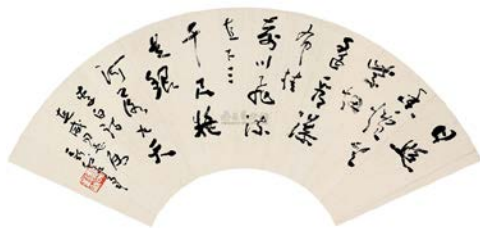 日照
香爐生
紫烟遥
看瀑
布挂
前川飛流
直下三
千尺疑
是銀
河落九天
李白诗